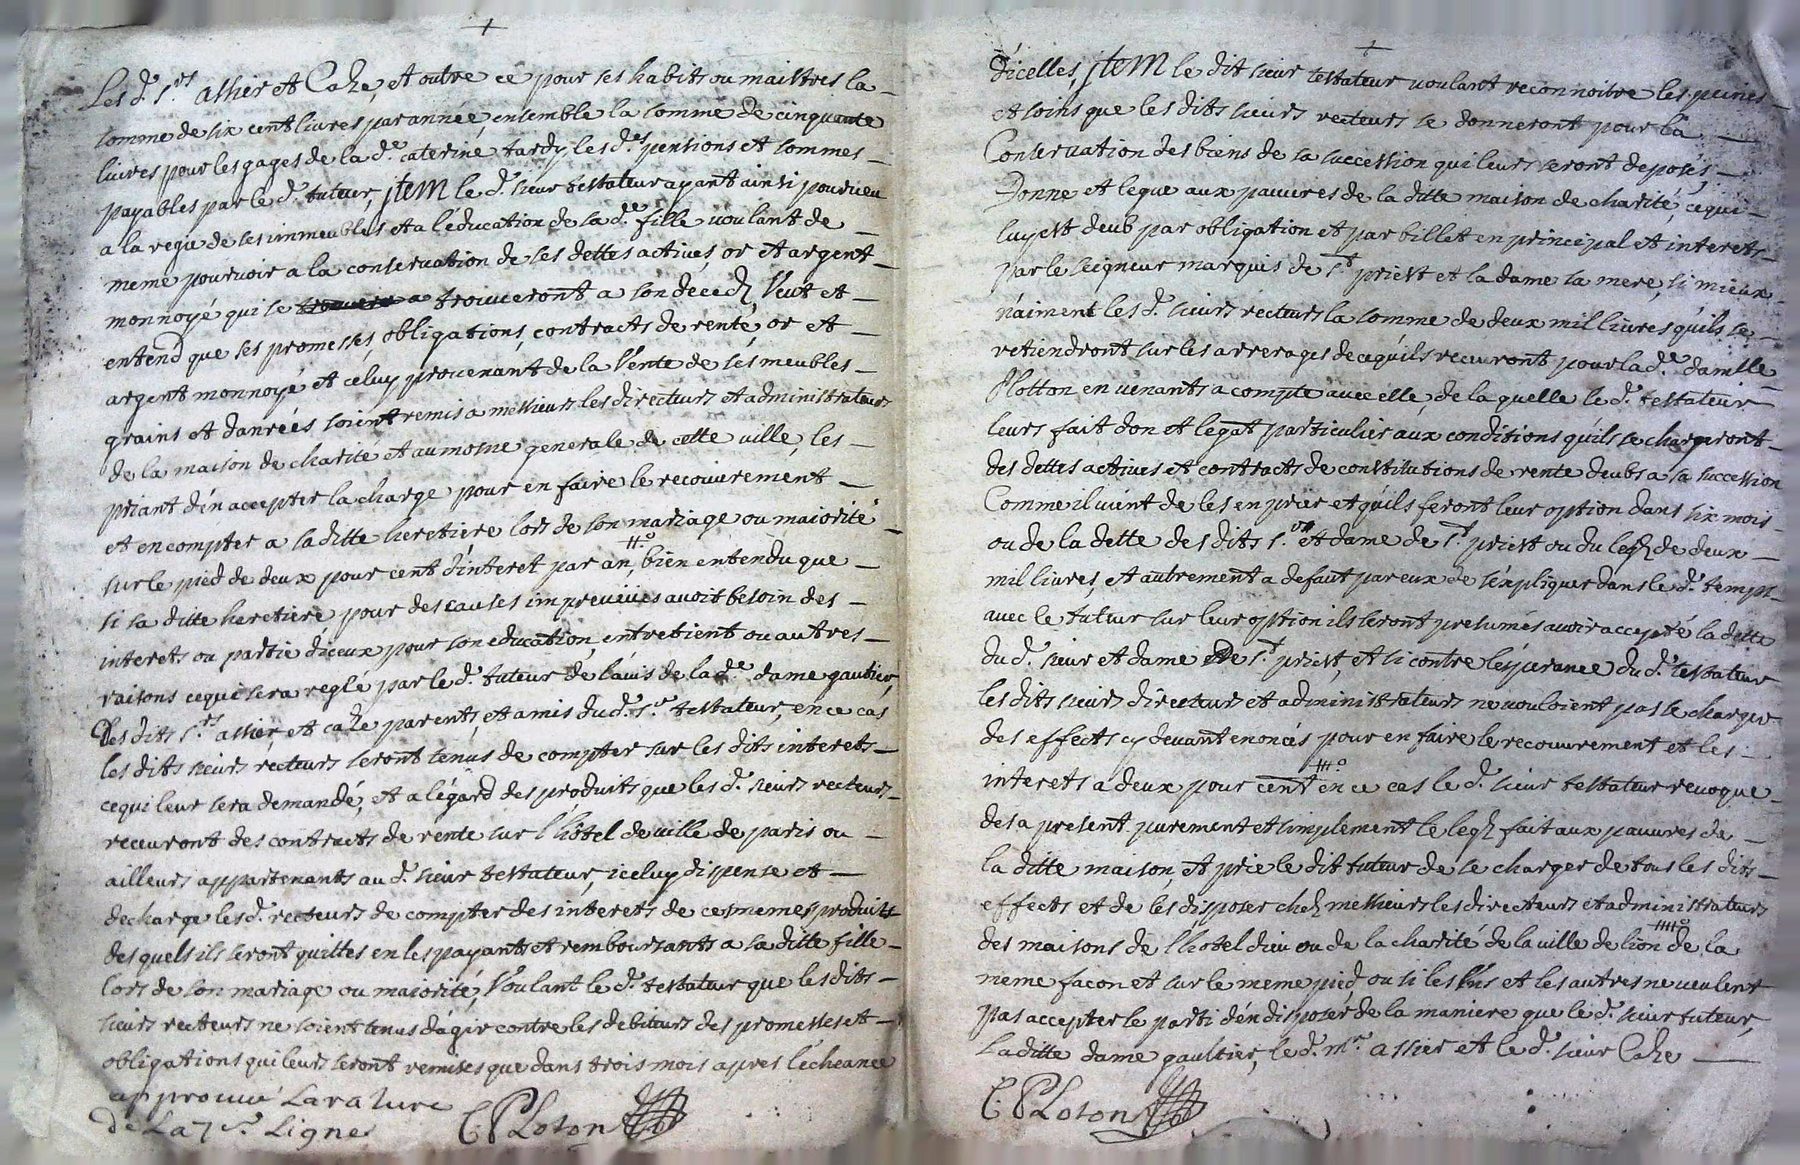 Les d. s.rs assier et Caze, et outre ce pour ses habits ou maistres la
somme de six cent livres par année, ensemble la somme de cinquante
livres pour les gages de la d.e caterine tardy, les d.es pensions et sommes
payables par le d. tuteur, jtem le d. sieur testateur ayant ainsi pourveu
a la regie de ses immeubles et a l'éducation de la d.e fille voulant de
meme pourvoir a la conservation de ses dettes actives, or et argent
monnoyé qui se trouveront a son decedz, veut et
entend que ses promesses, obligations, contracts de rente, or et
argent monnoyé et celuy provenant de la Vente de ses meubles
grains et danrées soient remis a messieurs les directeurs et administrateurs
de la maison de charité et aumosne generale de cette ville, les
priant d'en accepter la charge pour en faire le recouvrement
et en compter a la ditte heretiere lors de son mariage ou majorité
sur le pied de deux pour cent d'interet par an, bien entendu que
si sa ditte heretiere pour des causes impreuues avoit besoin des
interets ou partie d'iceux pour son education, entretient ou autres
raisons ce qui sera reglé par le d. tuteur de l'auis de la d.e dame gautier,
Les dits s.rs assier, et caze parents, et amis du d. s.r testateur, en ce cas
les dits sieurs recteurs seront tenus de compter sur les dits interets
ce qui leur sera demandé, et a l'égard des produits que les d. sieurs recteurs
receuront des contracts de rente sur l'hôtel de ville de paris ou
ailleurs appartenants au d. sieur testateur, iceluy dispense et
decharge les d. recteurs de compter des interets de ces memes produits
des quels ils seront quittes en les payants et remboursants a sa ditte fille
lors de son mariage ou majorité, Voulant le d. testateur que les dits
sieurs recteurs ne soient tenus d'agir contre les debiteurs des promesses et
obligations qui leurs seront remises que dans trois mois apres l'écheance
approuué La rature
de La 7.e Ligne C. PLoton
d'icelles, jtem le dit sieur testateur voulant reconnoitre les peines
et soins que les dits sieurs recteurs se donneront pour la
Conservation des biens de sa succession qui leurs seront deposés,
Donne et legue aux pauvres de la ditte maison de charité, ce qui
luy est deub par obligation et par billet en principal et interets
par le seigneur marquis de s.t priest et la dame sa mere, si mieux
n'aiment les d. sieurs recteurs la somme de deux mil livres qu'ils se
retiendront sur les arrerages de ce qu'ils receuront pour la d.e damlle
Plotton en venants a compte avec elle, de la quelle le d. testateur
leurs fait don et legat particulier aux conditions qu'ils se chargeront
des dettes actives et contracts de constitutions de rente deubs a sa succession
Comme il vient de les en prier et qu'ils feront leur option dans six mois
ou de la dette des dits s.r et dame de s.t priest ou du legz de deux
mil livres, et autrement a defaut par eux de s'expliquer dans le d. temps
avec le tuteur sur leur option ils seront presumés avoir accepté la dette
du d. sieur et dame de s.t priest, et si contre l'esperance du d. testateur
les dits sieurs directeurs et administrateurs ne vouloient pas se charger
des effects cy devant enoncés pour en faire le recouvrement et les
interets a deux pour cent en ce cas le d. sieur testateur revoque
des a present purement et simplement le legz fait aux pauvres de
la ditte maison, et prie le dit tuteur de se charger de tous les dits
effects et de les disposer chez messieurs les directeurs et administrateurs
des maisons de l'hotel dieu ou de la charité de la ville de lion de la
meme facon et sur le meme pied ou si les uns et les autres ne veulent
pas accepter le parti d'en disposer de la maniere que le d. sieur tuteur,
La ditte dame gaultier, le d. mr. assier et le d. sieur Caze
C. PLoton